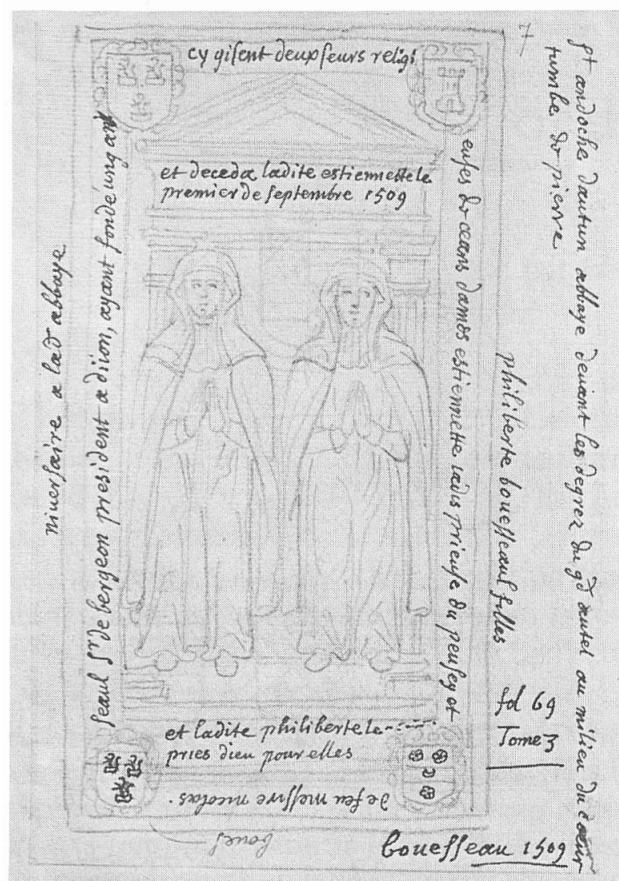 7
St andoche dautun abbaye deuant les degrez du gd autel au milieu du coeur
tumbe de pierre
cy gisent deux seurs religi
euses de ceans dames estiennette iadis prieuse du peusey et
philiberte bouesseaul filles
de feu messire nicolas
boues
seaul sr de bergeon president a diion, ayant fondé ung an
niuersaire a ladt abbaye
et deceda ladite estiennette le
premier de septembre 1509
et ladite philiberte le
pries dieu pour elles
fol 69
Tome 3
bouesseau 1509